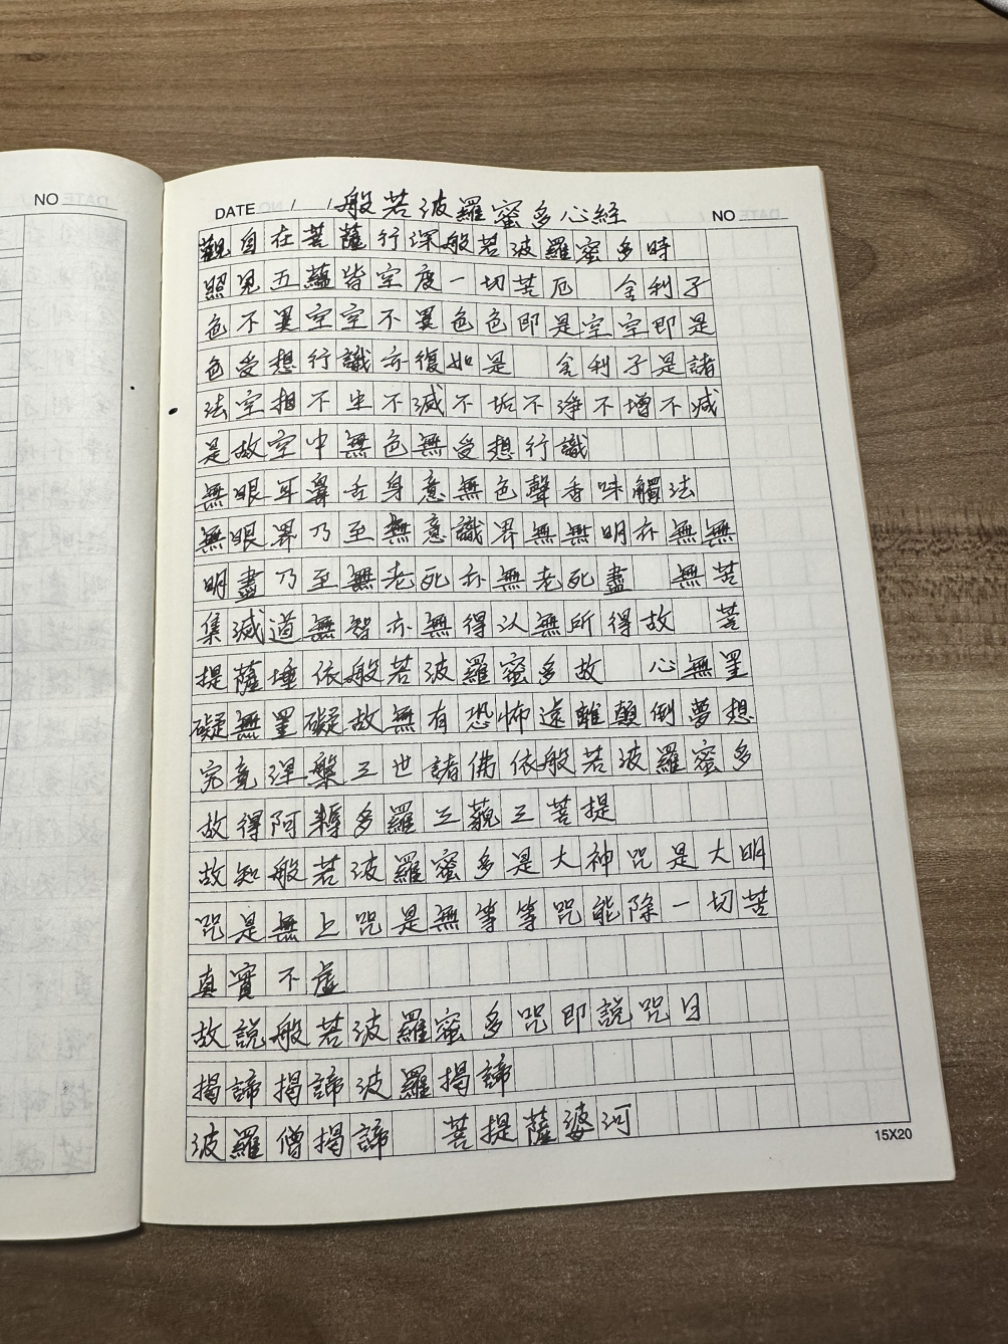 DATE / / 般若波羅蜜多心經 NO
觀自在菩薩行深般若波羅蜜多時
照見五蘊皆空度一切苦厄 舍利子
色不異空空不異色色即是空空即是
色受想行識亦復如是 舍利子是諸
法空相不生不滅不垢不淨不增不減
是故空中無色無受想行識
無眼耳鼻舌身意無色聲香味觸法
無眼界乃至無意識界無無明亦無無
明盡乃至無老死亦無老死盡 無苦
集滅道無智亦無得以無所得故 菩
提薩埵依般若波羅蜜多故 心無罣
礙無罣礙故無有恐怖遠離顛倒夢想
究竟涅槃三世諸佛依般若波羅蜜多
故得阿耨多羅三藐三菩提
故知般若波羅蜜多是大神咒是大明
咒是無上咒是無等等咒能除一切苦
真實不虛
故說般若波羅蜜多咒即說咒曰
揭諦揭諦波羅揭諦
波羅僧揭諦 菩提薩婆河
15X20
NO